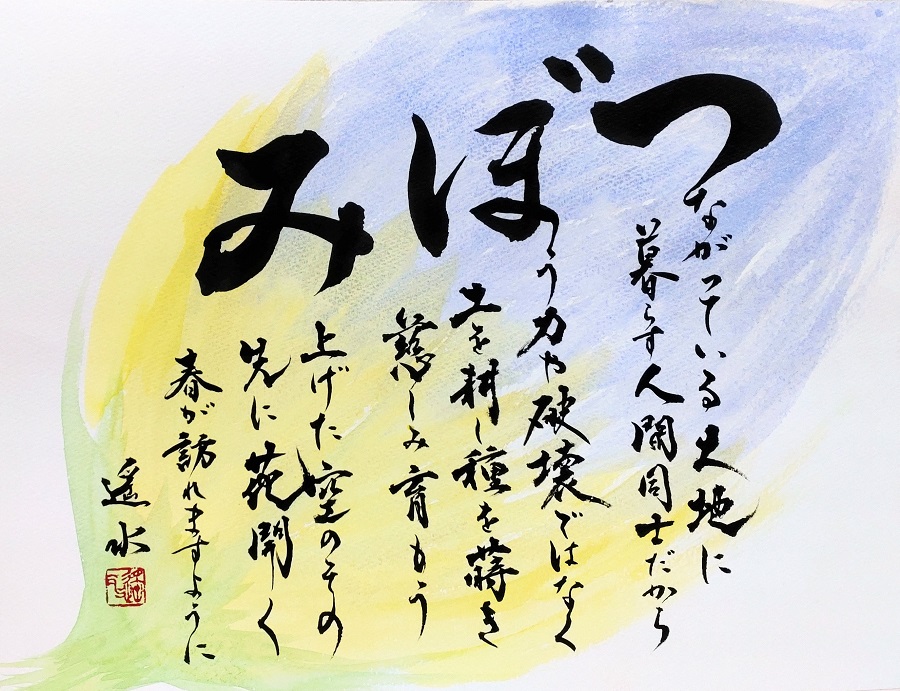 つながっている大地に
暮らす人間同士だから
ぼう力や破壊ではなく
土を耕し種を蒔き
慈しみ育もう
み上げた空のその
先に花開く
春が訪れますように
遥水